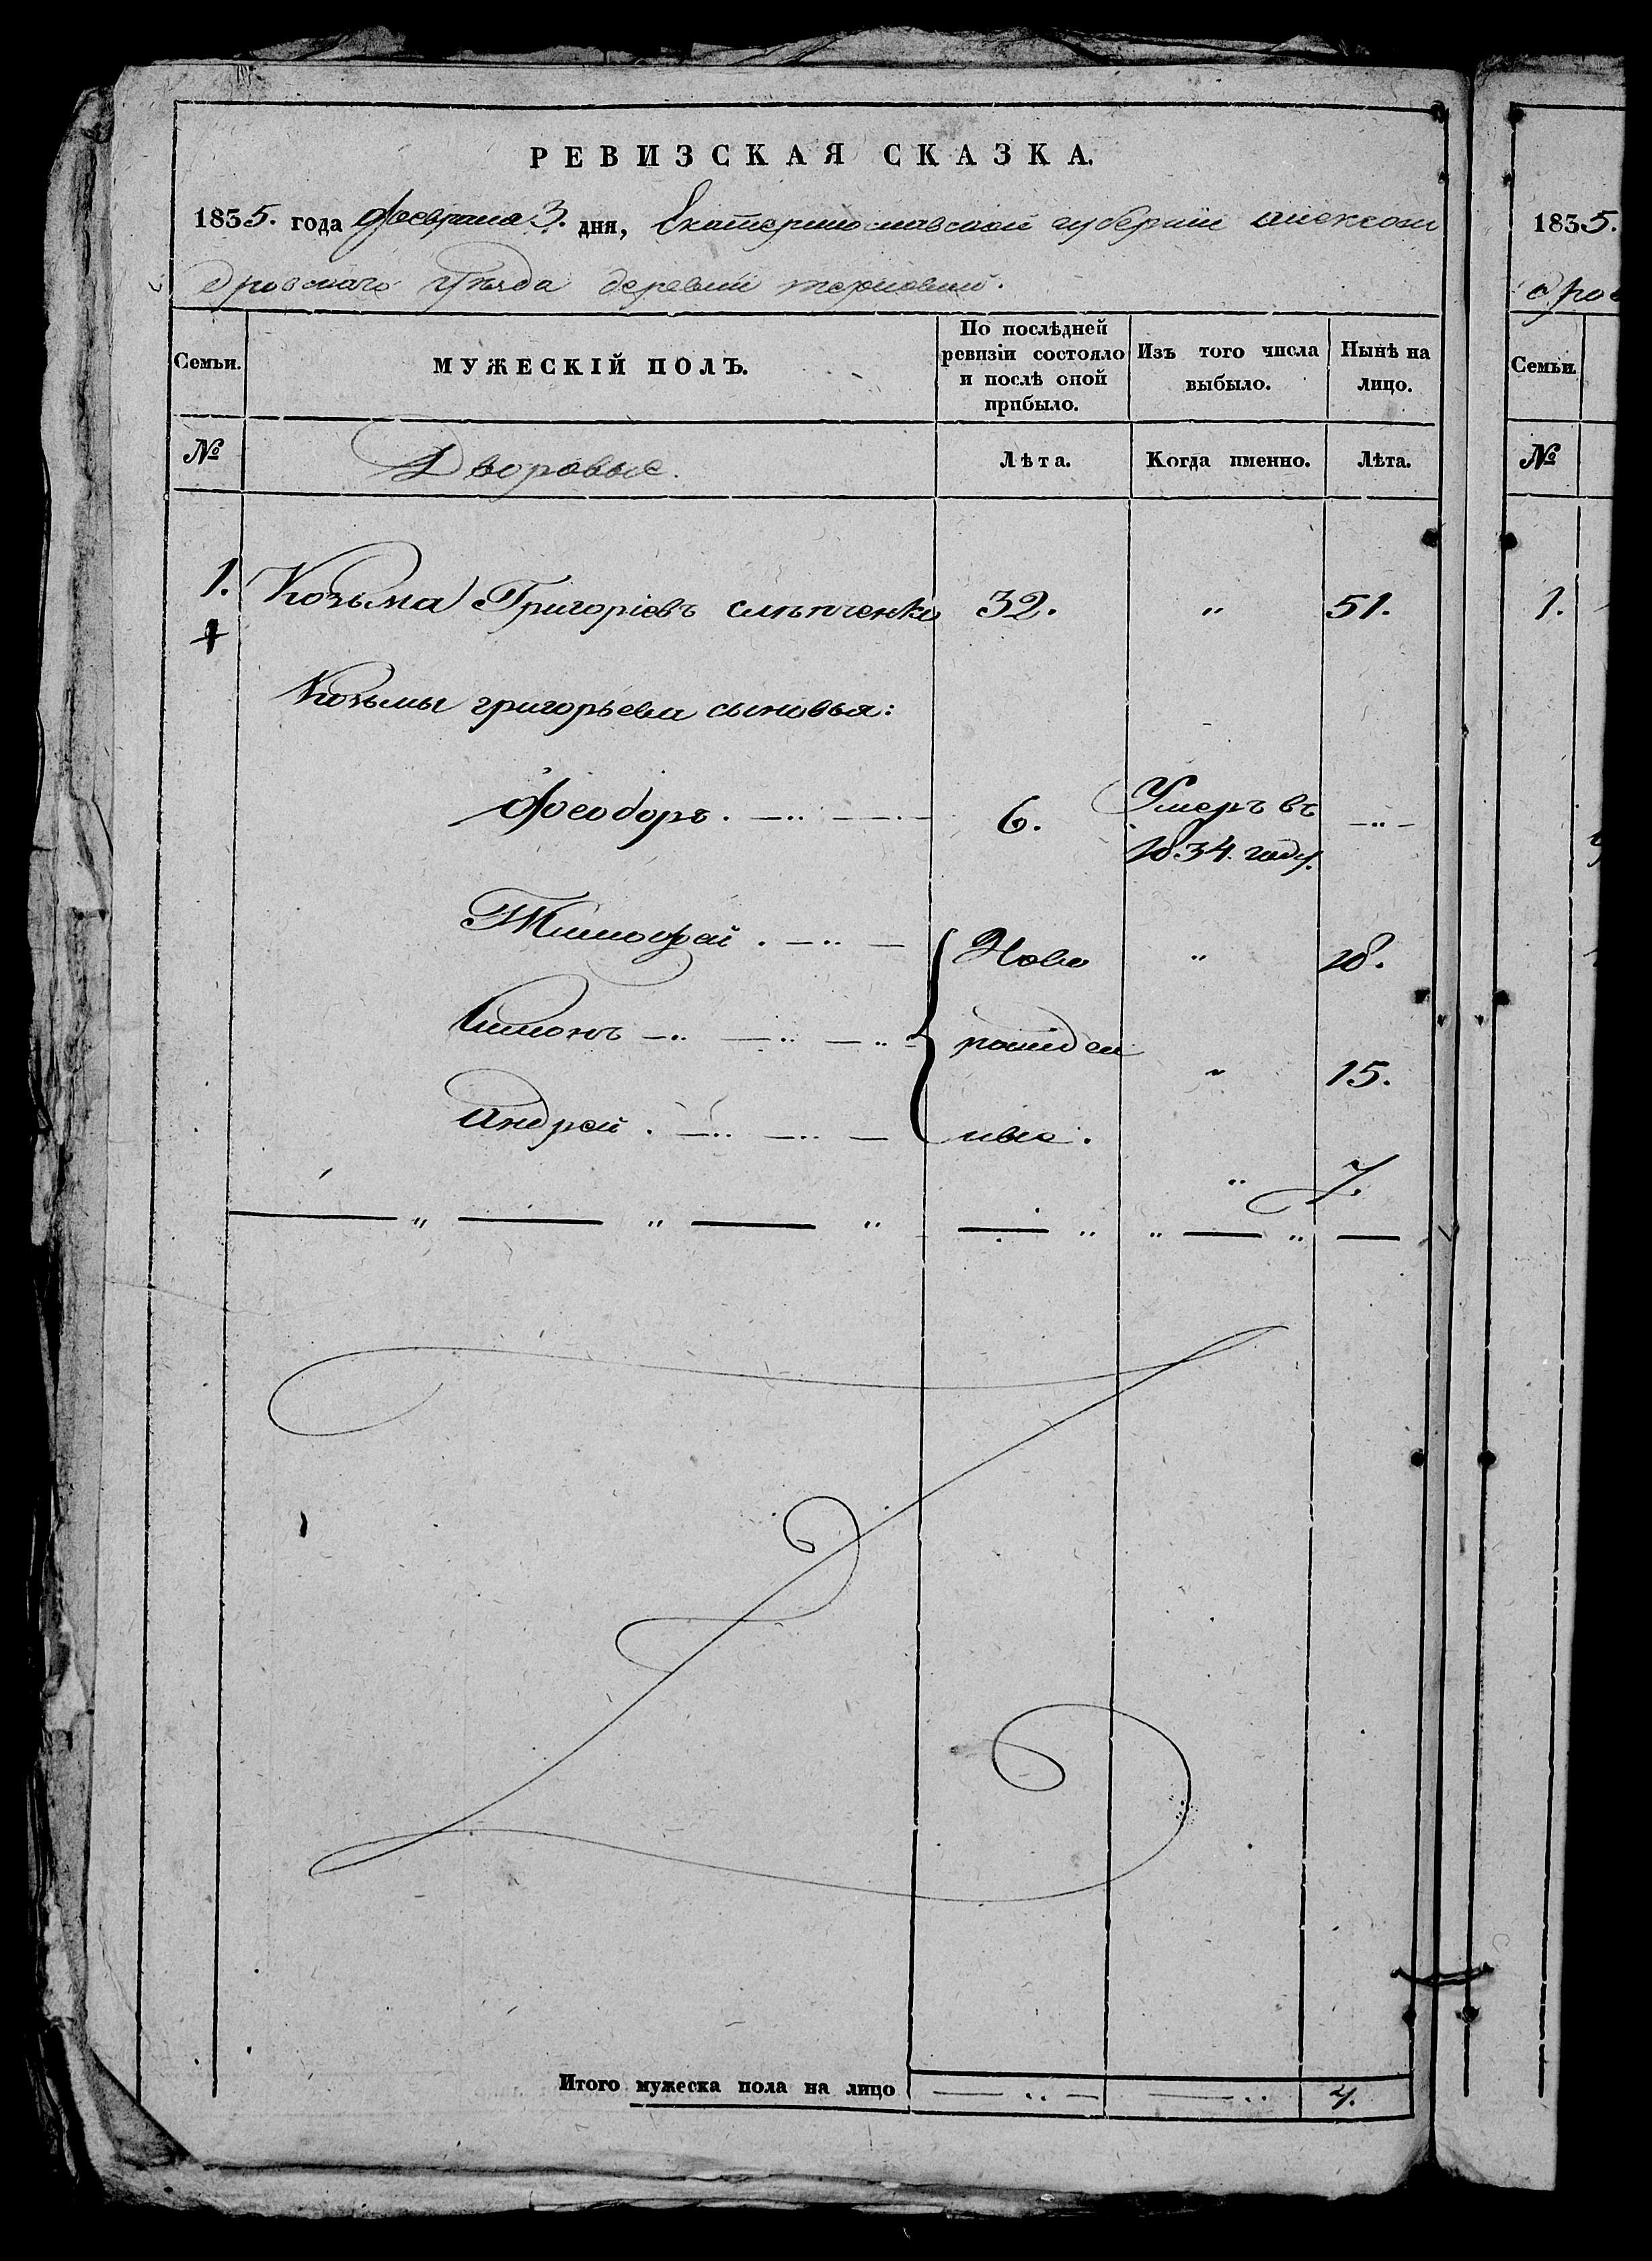 РЕВИЗСКАЯ СКАЗКА.
1835. года февраля 3. дня, Екатеринославской губернии алексан
дровского уезда деревни терновки.
Семьи.
МУЖЕСКІЙ ПОЛЪ.
По послѣдней ревизіи состояло и послѣ оной прибыло.
Изъ того числа выбыло.
Нынѣ на лицо.
№
Дворовые.
Лѣта.
Когда именно.
Лѣта.
1. Козьма Григоріевъ слѣпченко 32. " 51.
Козьмы григорьева сыновья:
Феодоръ. 6. Умеръ въ
1834. году.
Тимофей. Ново " 18.
Симонъ рожден " 15.
андрей. ные. " 7.
Итого мужеска пола на лицо 4.
1835.
дров
Семьи.
№
1.